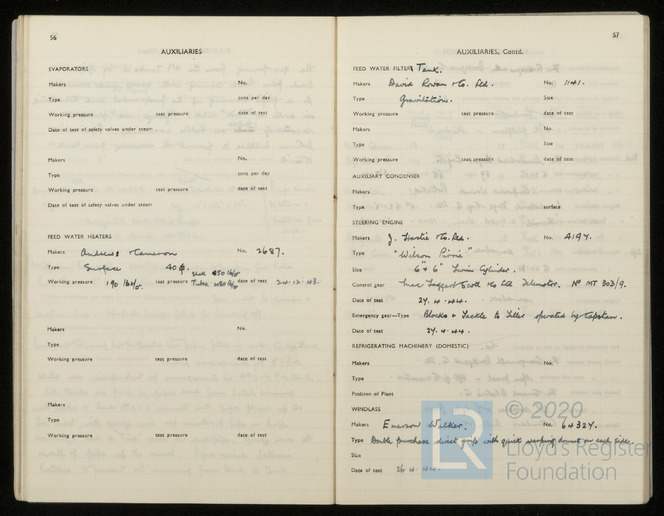 56
AUXILIARIES
EVAPORATORS
Makers No.
Type tons per day
Working pressure test pressure date of test
Date of test of safety valves under steam
Makers No.
Type tons per day
Working pressure test pressure date of test
Date of test of safety valves under steam
FEED WATER HEATERS
Makers Andrews & Cameron No. 2687.
Type Surface 40
Working pressure 190 lb/ test pressure Shell Tubes date of test 24.12.43.
Makers No.
Type
Working pressure test pressure date of test
Makers
Type
Working pressure test pressure date of test
57
AUXILIARIES, Contd.
FEED WATER FILTER Tank.
Makers David Rowan & Co. Ltd. No. 1141.
Type Gravitation. Size
Working pressure test pressure date of test
Makers No.
Type Size
Working pressure test pressure date of test
AUXILIARY CONDENSER
Makers
Type surface
STEERING ENGINE
Makers J. Hastie & Co. Ltd. No. 4197.
Type "Wilson Pirrie"
Size 6" x 6" Twin Cylinder.
Control gear Mac Taggart Scott & Co Ltd Telemotor. No MT 303/9.
Date of test 24.4.44.
Emergency gear—Type Blocks & Tackle to Tiller operated by Capstan.
Date of test 24.4.44.
REFRIGERATING MACHINERY (DOMESTIC)
Makers No.
Type
Position of Plant
WINDLASS
Makers Emerson Walker. No. 64324.
Type Double purchase with quick warping on each side.
Size
Date of test 26.4.44.
© 2020
LR
Lloyd's Register
Foundation